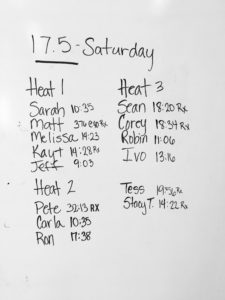 17.5 - Saturday
Heat 1
Sarah 10:35
Matt RX
Melissa 14:23
Kayt 14:28 RX
Jeff 9:03
Heat 2
Pete 32:13 RX
Carla 10:35
Ron 17:38
Heat 3
Sean 18:20 RX
Corey 18:34 RX
Robin 11:06
Ivo 13:16
Tess 19:56 RX
Stacy T. 14:22 RX